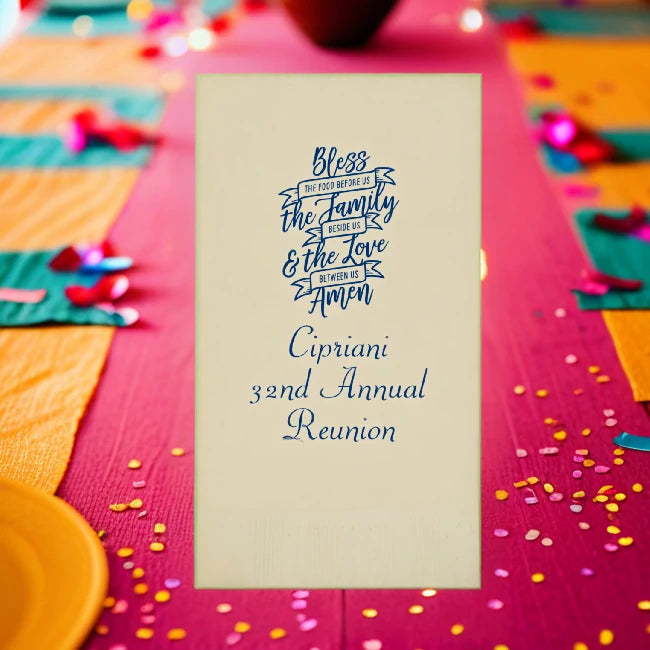 Bless
THE FOOD BEFORE US
the Family
BESIDE US
& the Love
BETWEEN US
Amen
Cipriani
32nd Annual
Reunion